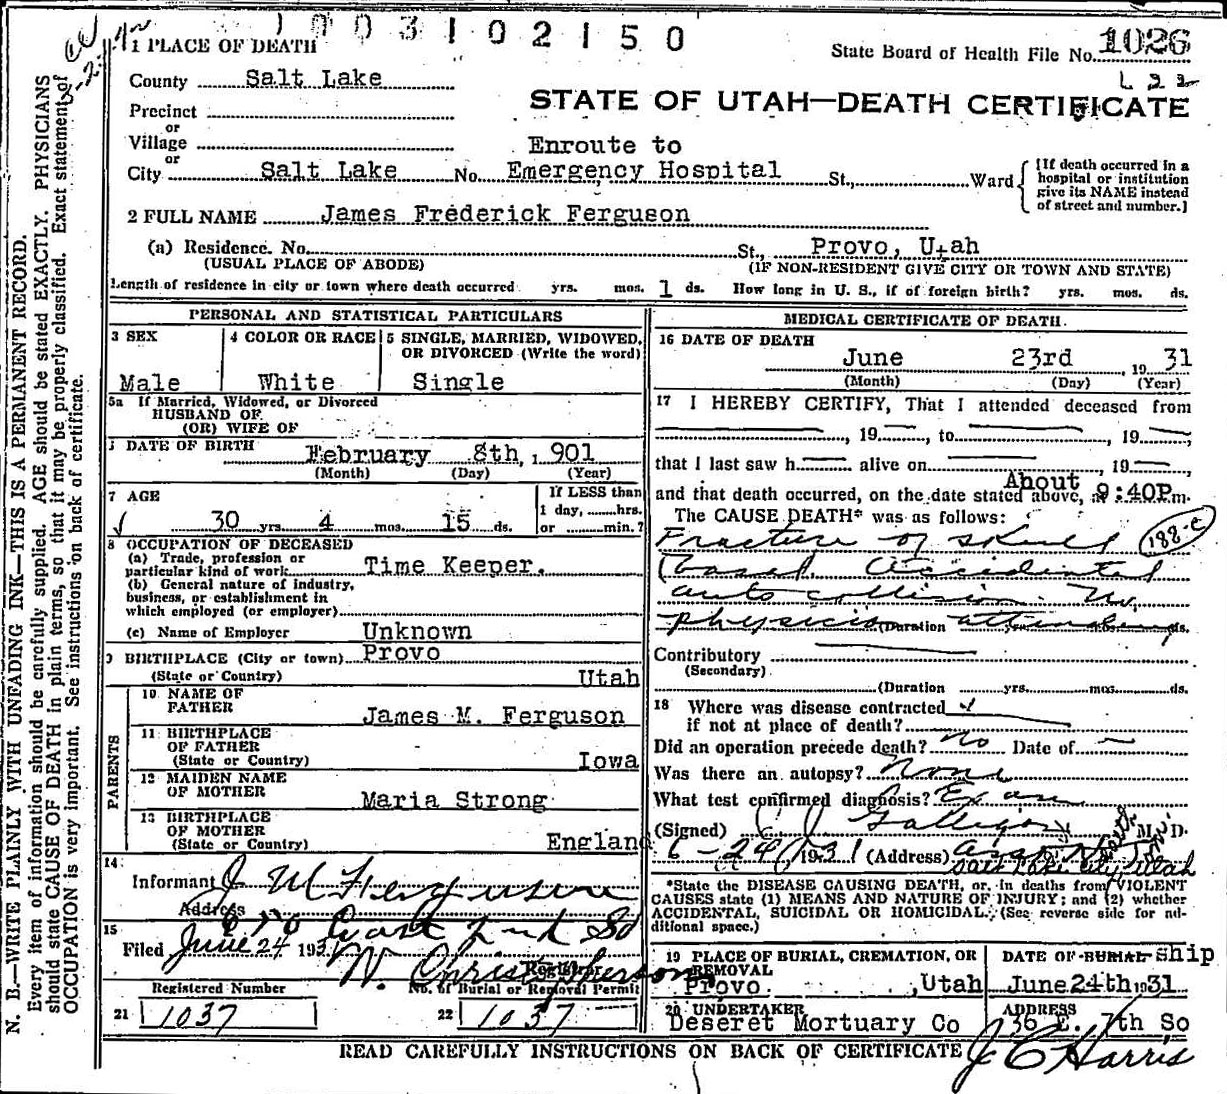 1003102150
1 PLACE OF DEATH
State Board of Health File No. 1026
County Salt Lake
STATE OF UTAH—DEATH CERTIFICATE
Precinct
or
Village
Enroute to
or
City Salt Lake No. Emergency Hospital St., Ward
[If death occurred in a
hospital or institution
give its NAME instead
of street and number.]
2 FULL NAME James Frederick Ferguson
(a) Residence. No. St., Provo, Utah
(USUAL PLACE OF ABODE) (IF NON-RESIDENT GIVE CITY OR TOWN AND STATE)
Length of residence in city or town where death occurred yrs. mos. 1 ds. How long in U. S., if of foreign birth? yrs. mos. ds.
PERSONAL AND STATISTICAL PARTICULARS
3 SEX
Male
4 COLOR OR RACE
White
5 SINGLE, MARRIED, WIDOWED,
OR DIVORCED (Write the word)
Single
5a If Married, Widowed, or Divorced
HUSBAND OF
(OR) WIFE OF
DATE OF BIRTH
February 8th, 1901
(Month) (Day) (Year)
7 AGE
30 yrs. 4 mos. 15 ds.
If LESS than
1 day, hrs.
or min.?
8 OCCUPATION OF DECEASED
(a) Trade, profession or
particular kind of work Time Keeper.
(b) General nature of industry,
business, or establishment in
which employed (or employer)
(c) Name of Employer Unknown
9 BIRTHPLACE (City or town) Provo
(State or Country) Utah
PARENTS
10 NAME OF
FATHER James M. Ferguson
11 BIRTHPLACE
OF FATHER
(State or Country) Iowa
12 MAIDEN NAME
OF MOTHER Maria Strong
13 BIRTHPLACE
OF MOTHER
(State or Country) England
14
Informant J M Ferguson
Address
15
Filed June 24 1931 N. Christopherson
Registrar
Registered Number No. of Burial or Removal Permit
21 1037 22 1037
MEDICAL CERTIFICATE OF DEATH.
16 DATE OF DEATH
June 23rd, 1931
(Month) (Day) (Year)
17 I HEREBY CERTIFY, That I attended deceased from
, 19 , to , 19 ,
that I last saw h alive on , 19 ,
About
and that death occurred, on the date stated above, at 9:40P.m.
The CAUSE DEATH* was as follows:
Fracture of skull 188-c
(base). Accidental
auto collision. No
physician attending
(Duration yrs. mos. ds.
Contributory
(Secondary)
(Duration yrs. mos. ds.
18 Where was disease contracted
if not at place of death?
Did an operation precede death? No Date of
Was there an autopsy? None
What test confirmed diagnosis? Exam
(Signed) M. D.
6-24 1931 (Address)
Salt Lake City, Utah
*State the DISEASE CAUSING DEATH, or, in deaths from VIOLENT
CAUSES state (1) MEANS AND NATURE OF INJURY; and (2) whether
ACCIDENTAL, SUICIDAL OR HOMICIDAL. (See reverse side for additional space.)
19 PLACE OF BURIAL, CREMATION, OR
REMOVAL
Provo ,Utah
DATE OF BURIAL Ship
June 24th 1931
20 UNDERTAKER
Deseret Mortuary Co
ADDRESS
36 E. 7th So
J C Harris
READ CAREFULLY INSTRUCTIONS ON BACK OF CERTIFICATE
N. B.—WRITE PLAINLY WITH UNFADING INK—THIS IS A PERMANENT RECORD.
Every item of information should be carefully supplied. AGE should be stated EXACTLY. PHYSICIANS
should state CAUSE OF DEATH in plain terms, so that it may be properly classified. Exact statement of
OCCUPATION is very important. See instructions on back of certificate.